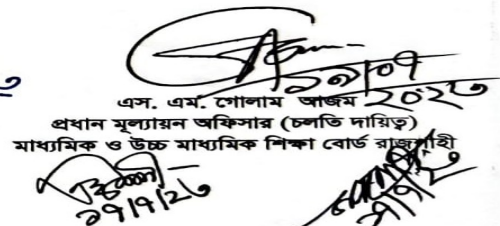 ১৯/০৭
২০২৩
এস. এম. গোলাম আজম
প্রধান মূল্যায়ন অফিসার (চলতি দায়িত্ব)
মাধ্যমিক ও উচ্চ মাধ্যমিক শিক্ষা বোর্ড রাজশাহী
১৭/৭/২৩